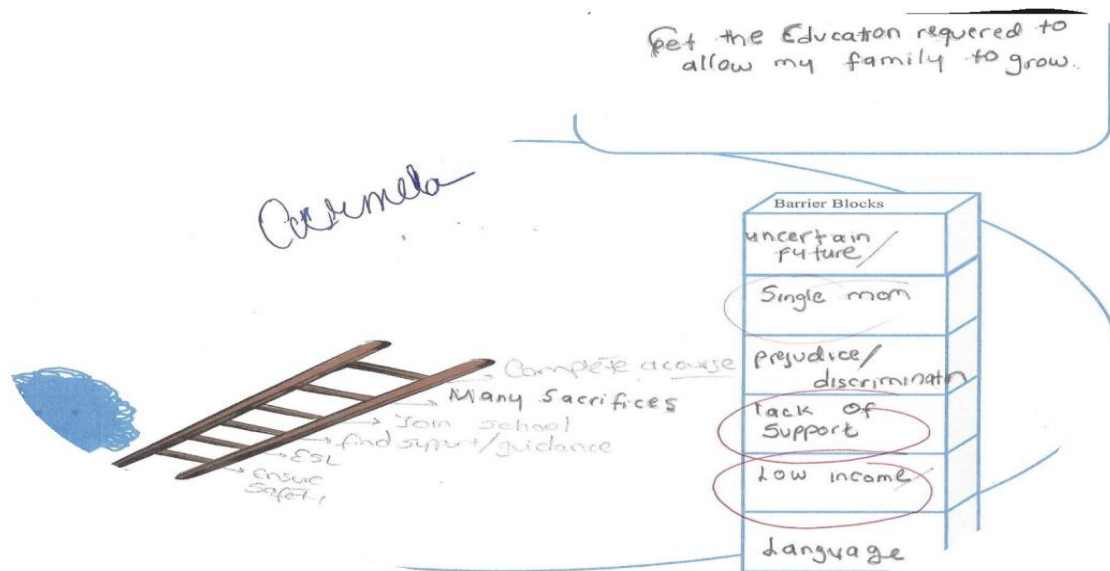 Get the Education requered to
allow my family to grow.
Carmela
Barrier Blocks
uncertain
future/
Single mom
prejudice/
discriminatn
lack of
support
Low income
Language
Complete a course
Many Sacrifices
Join school
find support/guidance
ESL
ensure
Safety